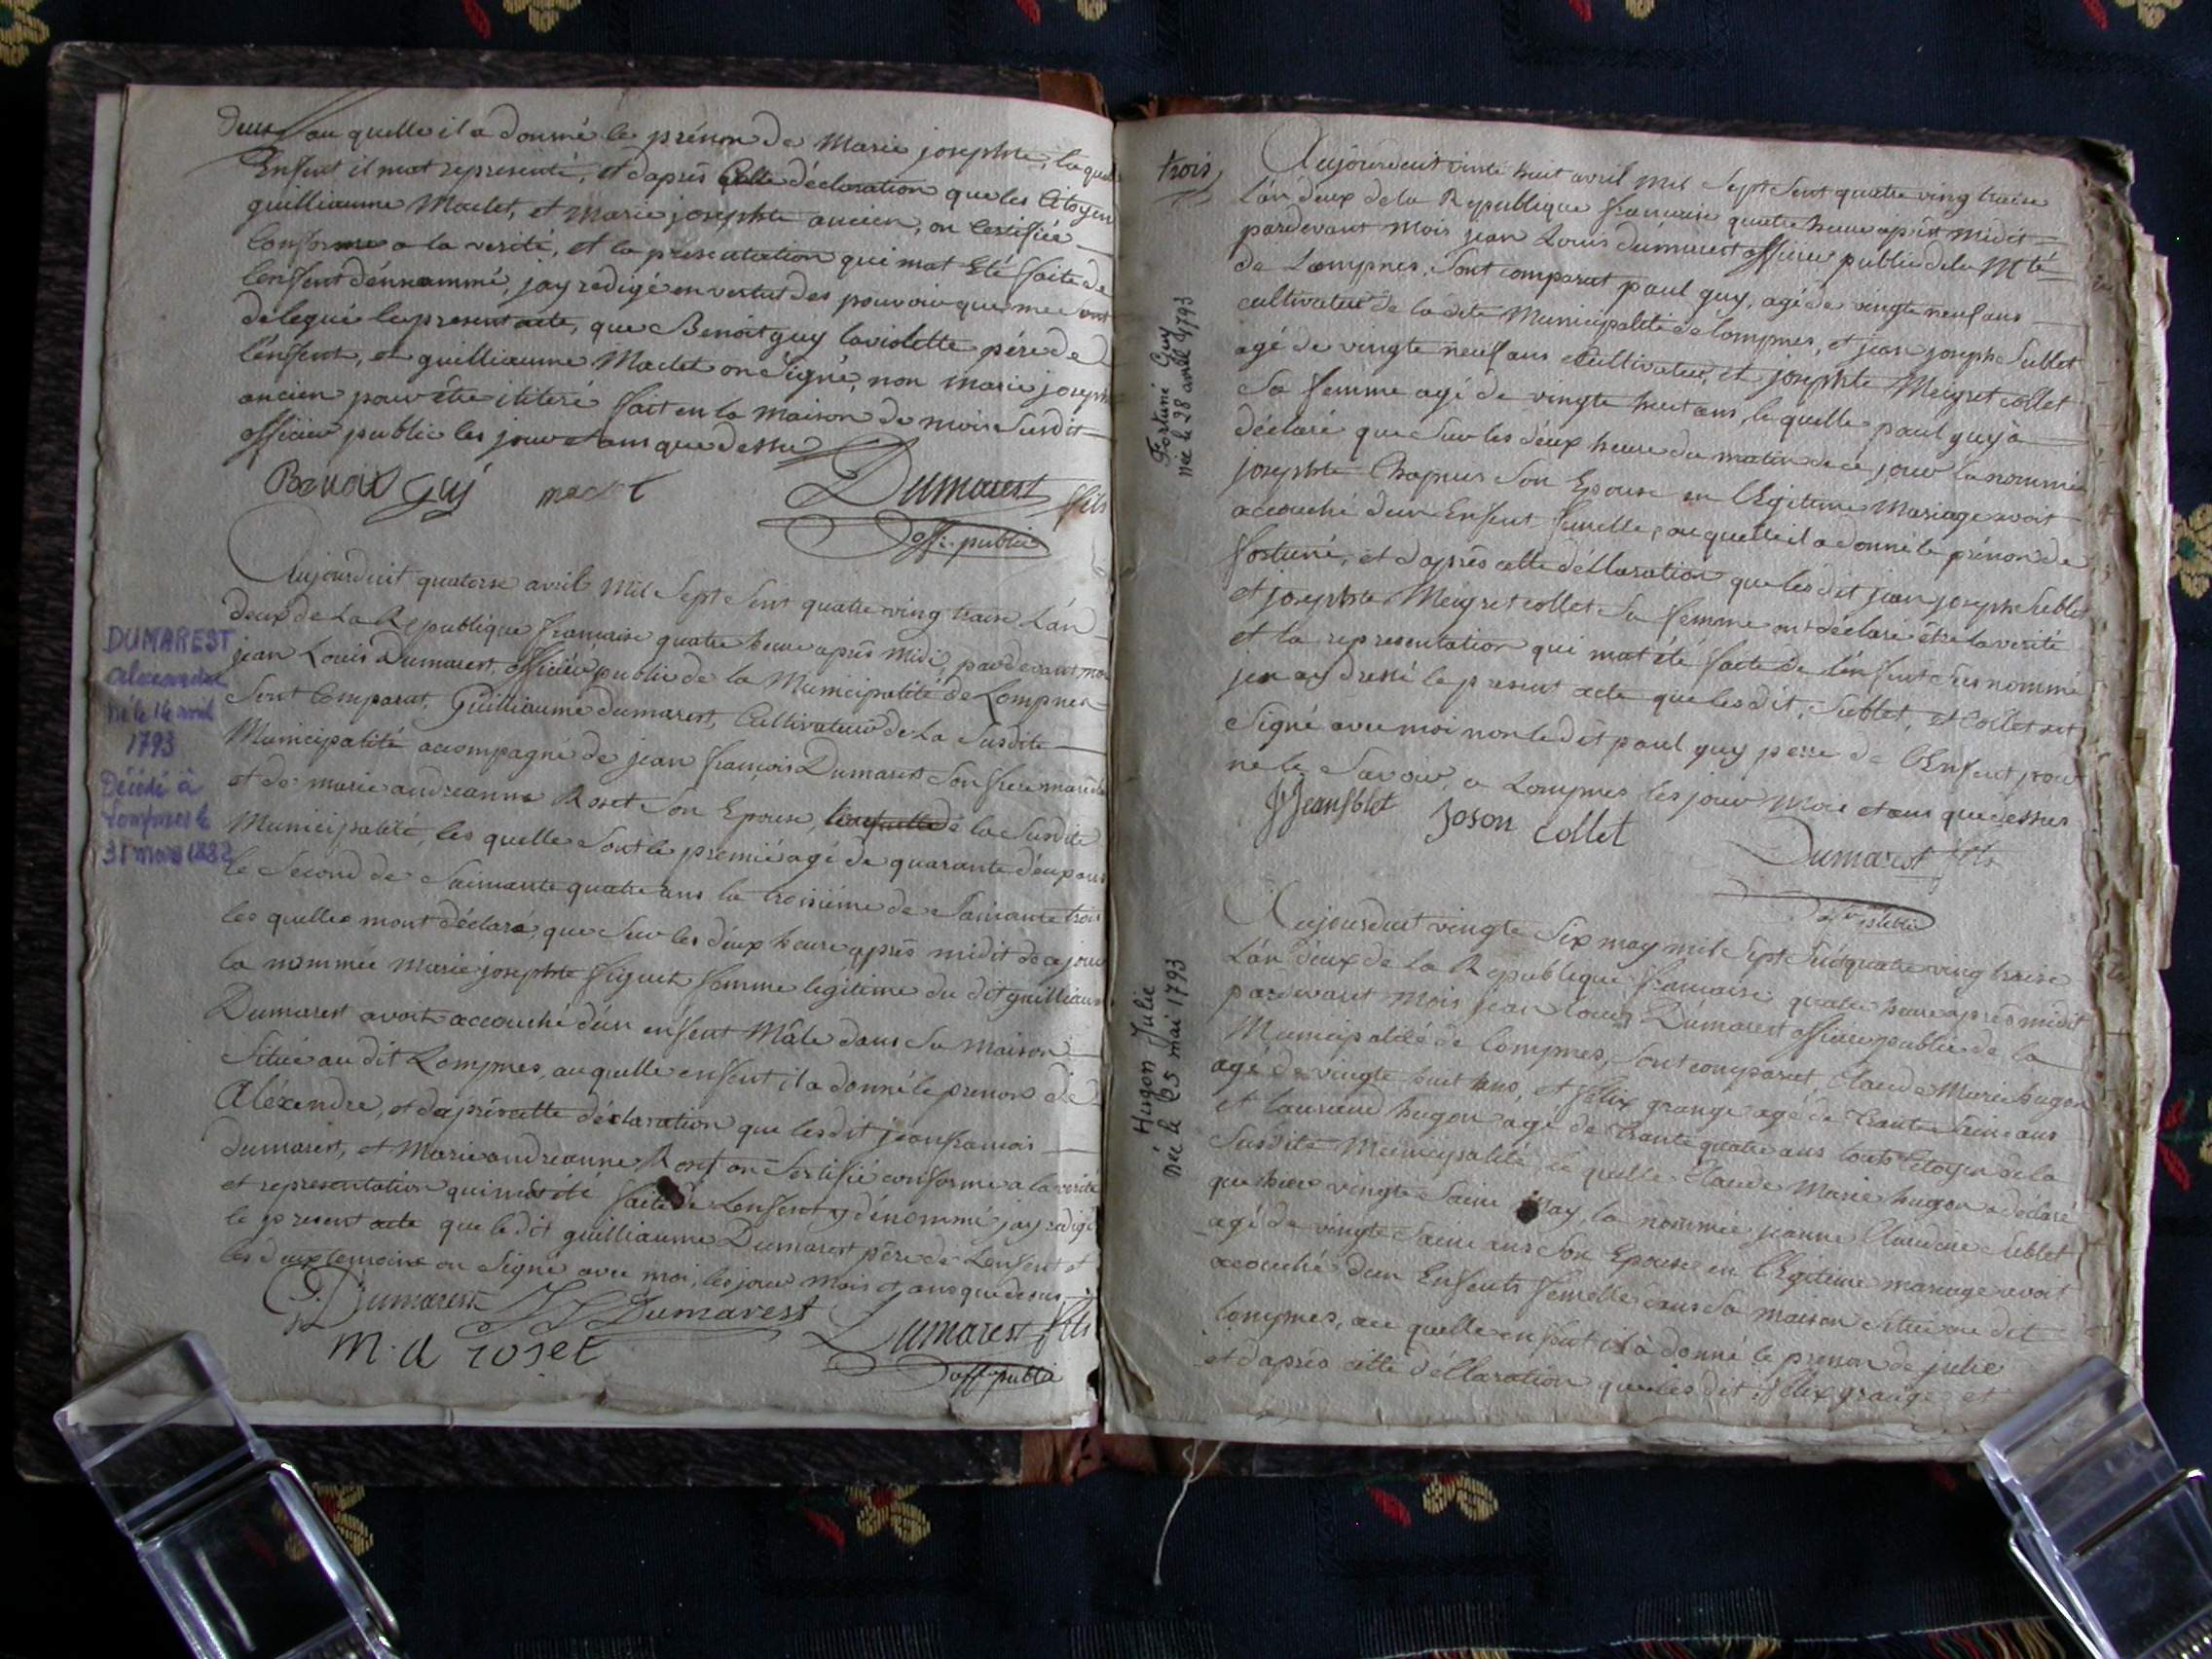 deux au quelle il a donné le prénon de Marie josephte, laquelle
Enfent il mat representé, et daprès Celle déclaration que les Citoyen
guilliaume Maclet, et Marie josephte ancien, on Certifiée
Conforme a la verité, et la presentation qui mat Eté faite de
lenfent dénnommé, jay rédigé en vertut des pouvoir que me sont
delegué le present acte, que Benoit guy laviolette pére de
lénfent, et guilliaume Maclet on Signé, non Marie joseph
ancien pour étre iliteré fait en la maison de mois Susdit
officier public les jour et ans que dessu
Benoit Guy maclet Dumarest fils
off. public
Aujourduit quatorse avril Mil Sept Sent quatre ving traise L'án
deux de La Republique francaise quatre heure après Midi, pardevant moi
jean Louis Dumarest, officiér public de la Municipalité de Lompnes
Sont Comparut, Guilliaume dumarest, Cultivateur de La Susdite
Municipalité accompagné de jean françois Dumarest Son frere
et de marie andreanne Roset Son Epouse, de la Susdite
Municipalité, les quelle Sont le premié agé de quarante déux ans
le Second de Saimante quatre ans la troisiéme de Saimante trois
les quelles mont déclaré, que Sur les déux heure après midit de ce jour
la nommée Marie josephte figuet femme legitime du dit guilliaume
Dumarest avoit accouché dún enfent Mâle dans Sa maison
Située au dit Lompnes, auquelle enfent il a donné le prenon dé
Aléxendre, et daprés cette déclaration que les dit jean francois
dumarest, et Marie andréanne Roset on Sertifié conforme a la verité
et representation qui mat été faite de Lenfent y dénommé jay redigé
le present acte que le dit guilliaume Dumarest pére de Lenfent et
les deux temoins on Signé avec moi, les jour mois et ans que dessus
G. Dumarest J f Dumarest Dumarest fils
m. a roset off. public
DUMAREST
alexandre
né le 14 avril
1793
Décédé à
Lompnes le
31 mars 1882
trois
Aujourduit vinte huit avril Mil Sept Sent quatre ving traise
L'án deux de la Republique francaise quatre heure après midit
pardevant mois jean Louis dumarest officier public de la Mté
de Lompnes, Sont comparut paul guy, agé de vingte neuf ans
cultivateur de la dite Municipalité de lompnes, et jean joseph Sublet
agé de vingte neuf ans Cultivateur, et josephte Meigret collet
Sa femme agé de vingte huit ans, le quelle paul guy à
déclaré que Sur les déux heure du matin de ce jour la nommée
josephte Chapuis Son Epouse en légitime Mariage avoit
accouché dun Enfent femelle, au quelle il a donné le prénon de
fortuné, et daprès cette déllaration que les dit jean joseph Sublet
et josephte Meigret collet Sa femme ont déclaré étre la verité
et la representation qui mat été faite de lénfent Sus nommé
jen ay dressé le present acte que les dit, Sublet, et Collet ont
Signé avec moi non le dit paul guy pere de lEnfent pour
ne le Savoir, a Lompnes les jour Mois et ans que dessus
JJean Sblet Joson collet
Dumarest fils
off. public
Fortuné Guy
née le 28 avril 1793
Aujourduit vingte Six may mil Sept Sent quatre ving traise
L'án déux de la Republique francaise quatre heure après midit
pardevant mois jean louis Dumarest officier public de la
Municipalité de lompnes, Sont comparut, Claude Marie hugon
agé de vingte huit ans, et félix grange agé de trante Seinc ans
et laurand hugon agé de trante quatre ans touts Citoyen de la
Susdite Municipalité, le quelle Claude Marie hugon a déclaré
que hier vingte Sainc May, la nommée jeanne Claudine Sublet
agé de vingte Sainc ans Son Epouse en légitime mariage avoit
accouché dun Enfents femelle dans Sa maison Située au dit
lompnes, au quelle enfent il à donné le prenon de julie
et daprés cette déllaration que les dit félix grange et
Hugon Julie
née le 25 mai 1793